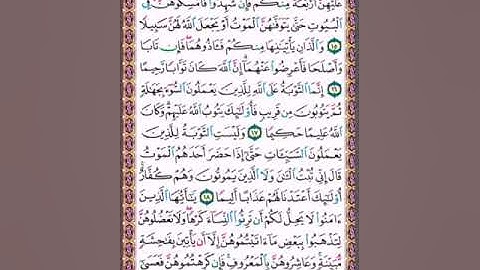 عَلَيْهِنَّ أَرْبَعَةً مِّنكُمْ فَإِن شَهِدُوا۟ فَأَمْسِكُوهُنَّ فِى
ٱلْبُيُوتِ حَتَّىٰ يَتَوَفَّىٰهُنَّ ٱلْمَوْتُ أَوْ يَجْعَلَ ٱللَّهُ لَهُنَّ سَبِيلًا
١٥ وَٱلَّذَانِ يَأْتِيَٰنِهَا مِنكُمْ فَـَٔاذُوهُمَا فَإِن تَابَا
وَأَصْلَحَا فَأَعْرِضُوا۟ عَنْهُمَآ إِنَّ ٱللَّهَ كَانَ تَوَّابًا رَّحِيمًا
١٦ إِنَّمَا ٱلتَّوْبَةُ عَلَى ٱللَّهِ لِلَّذِينَ يَعْمَلُونَ ٱلسُّوٓءَ بِجَهَٰلَةٍ
ثُمَّ يَتُوبُونَ مِن قَرِيبٍ فَأُو۟لَٰٓئِكَ يَتُوبُ ٱللَّهُ عَلَيْهِمْ وَكَانَ
ٱللَّهُ عَلِيمًا حَكِيمًا ١٧ وَلَيْسَتِ ٱلتَّوْبَةُ لِلَّذِينَ
يَعْمَلُونَ ٱلسَّيِّـَٔاتِ حَتَّىٰٓ إِذَا حَضَرَ أَحَدَهُمُ ٱلْمَوْتُ
قَالَ إِنِّى تُبْتُ ٱلْـَٰٔنَ وَلَا ٱلَّذِينَ يَمُوتُونَ وَهُمْ كُفَّارٌ
أُو۟لَٰٓئِكَ أَعْتَدْنَا لَهُمْ عَذَابًا أَلِيمًا ١٨ يَٰٓأَيُّهَا ٱلَّذِينَ
ءَامَنُوا۟ لَا يَحِلُّ لَكُمْ أَن تَرِثُوا۟ ٱلنِّسَآءَ كَرْهًا وَلَا تَعْضُلُوهُنَّ
لِتَذْهَبُوا۟ بِبَعْضِ مَآ ءَاتَيْتُمُوهُنَّ إِلَّآ أَن يَأْتِينَ بِفَٰحِشَةٍ
مُّبَيِّنَةٍ وَعَاشِرُوهُنَّ بِٱلْمَعْرُوفِ فَإِن كَرِهْتُمُوهُنَّ فَعَسَىٰٓ